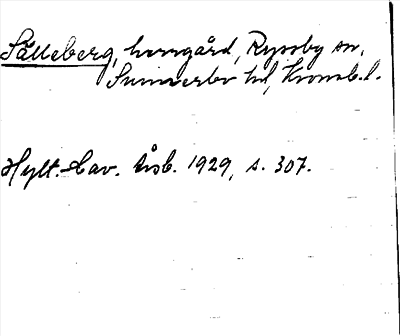 Sälleberg, herrgård, Ryssby sn,
Sunnerbo hd, Kronob. l.
Hylt.-Cav. årsb. 1929, s. 307.